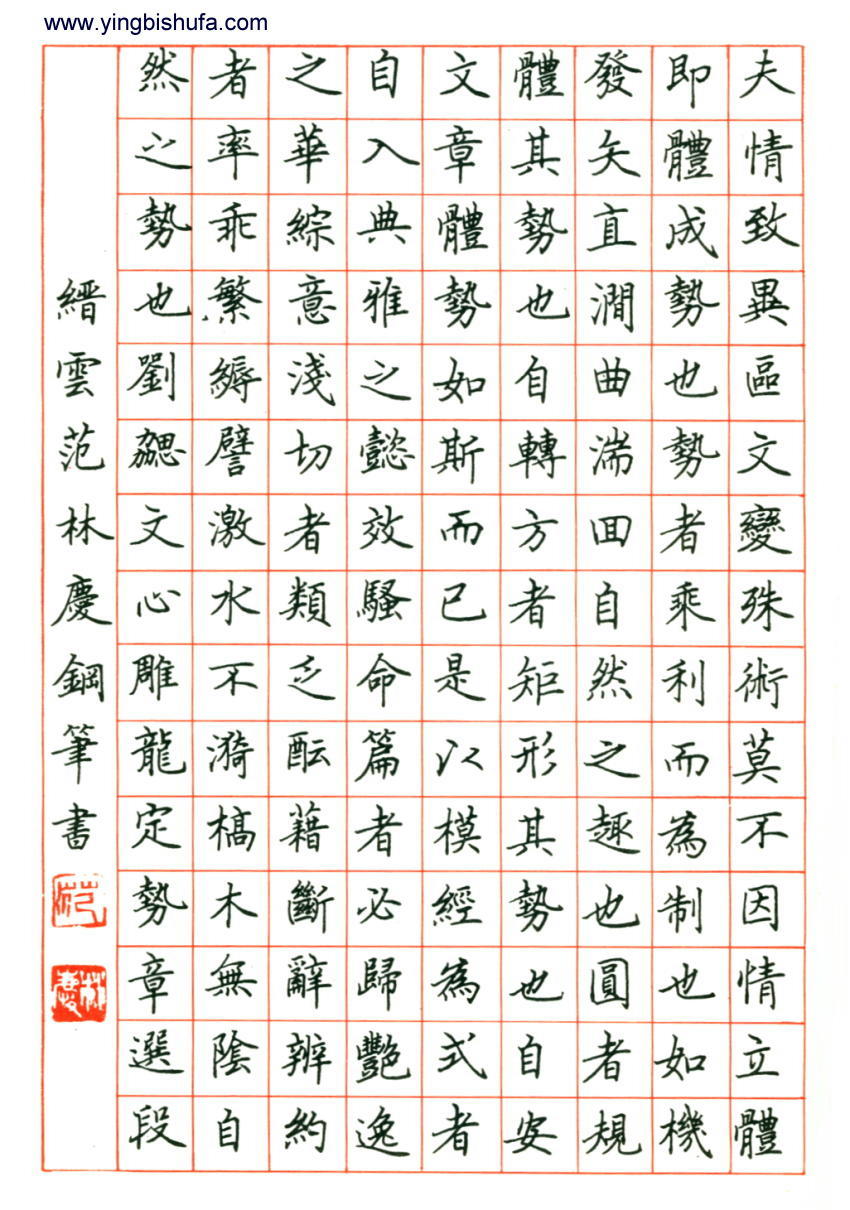 www.yingbishufa.com
夫情致異區文變殊術莫不因情立體
即體成勢也勢者乘利而為制也如機
發矢直澗曲湍回自然之趣也圓者規
體其勢也自轉方者矩形其勢也自安
文章體勢如斯而已是以模經為式者
自入典雅之懿效騷命篇者必歸艷逸
之華綜意淺切者類乏酝藉斷辭辨約
者率乖繁縟譬激水不漪槁木無陰自
然之勢也劉勰文心雕龍定勢章選段
縉雲范林慶鋼筆書
范
林慶